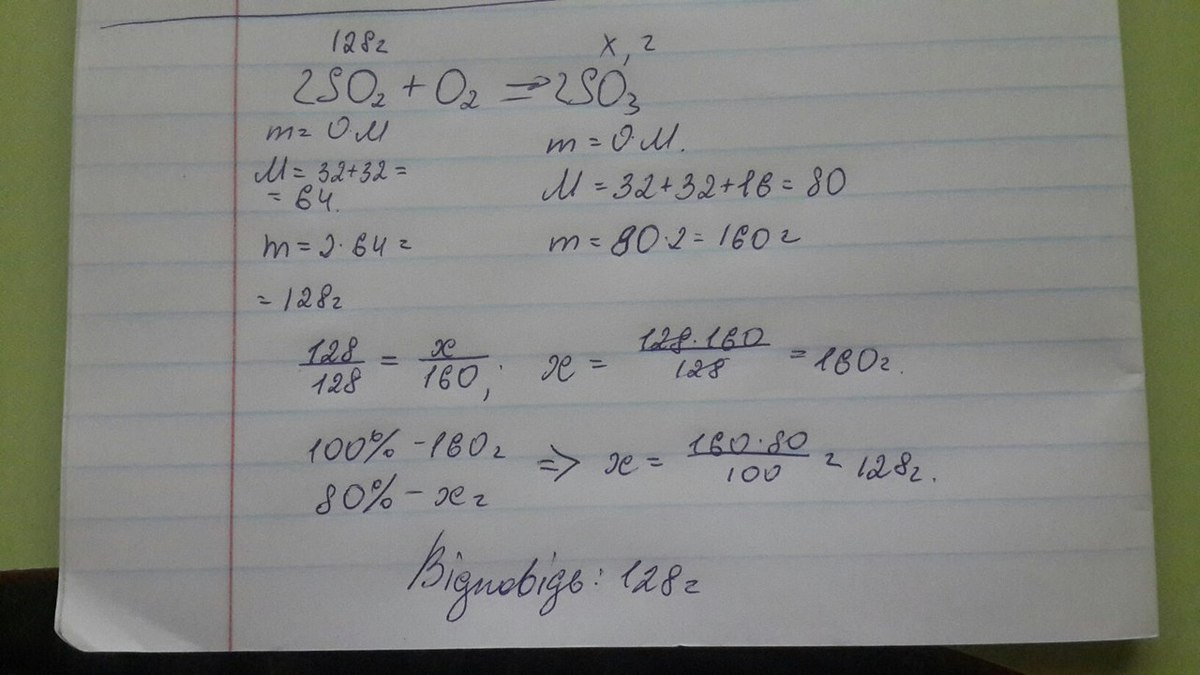 128г x, г
2SO₂ + O₂ ⇒ 2SO₃
m = υ·M m = υ·M.
M = 32+32 = M = 32+32+16 = 80
= 64.
m = 2·64 = m = 80·2 = 160г
= 128г
128/128 = x/160; x = 128·160/128 = 160г.
100% – 160г ⇒ x = 160·80/100 = 128г.
80% – xг
Відповідь: 128г